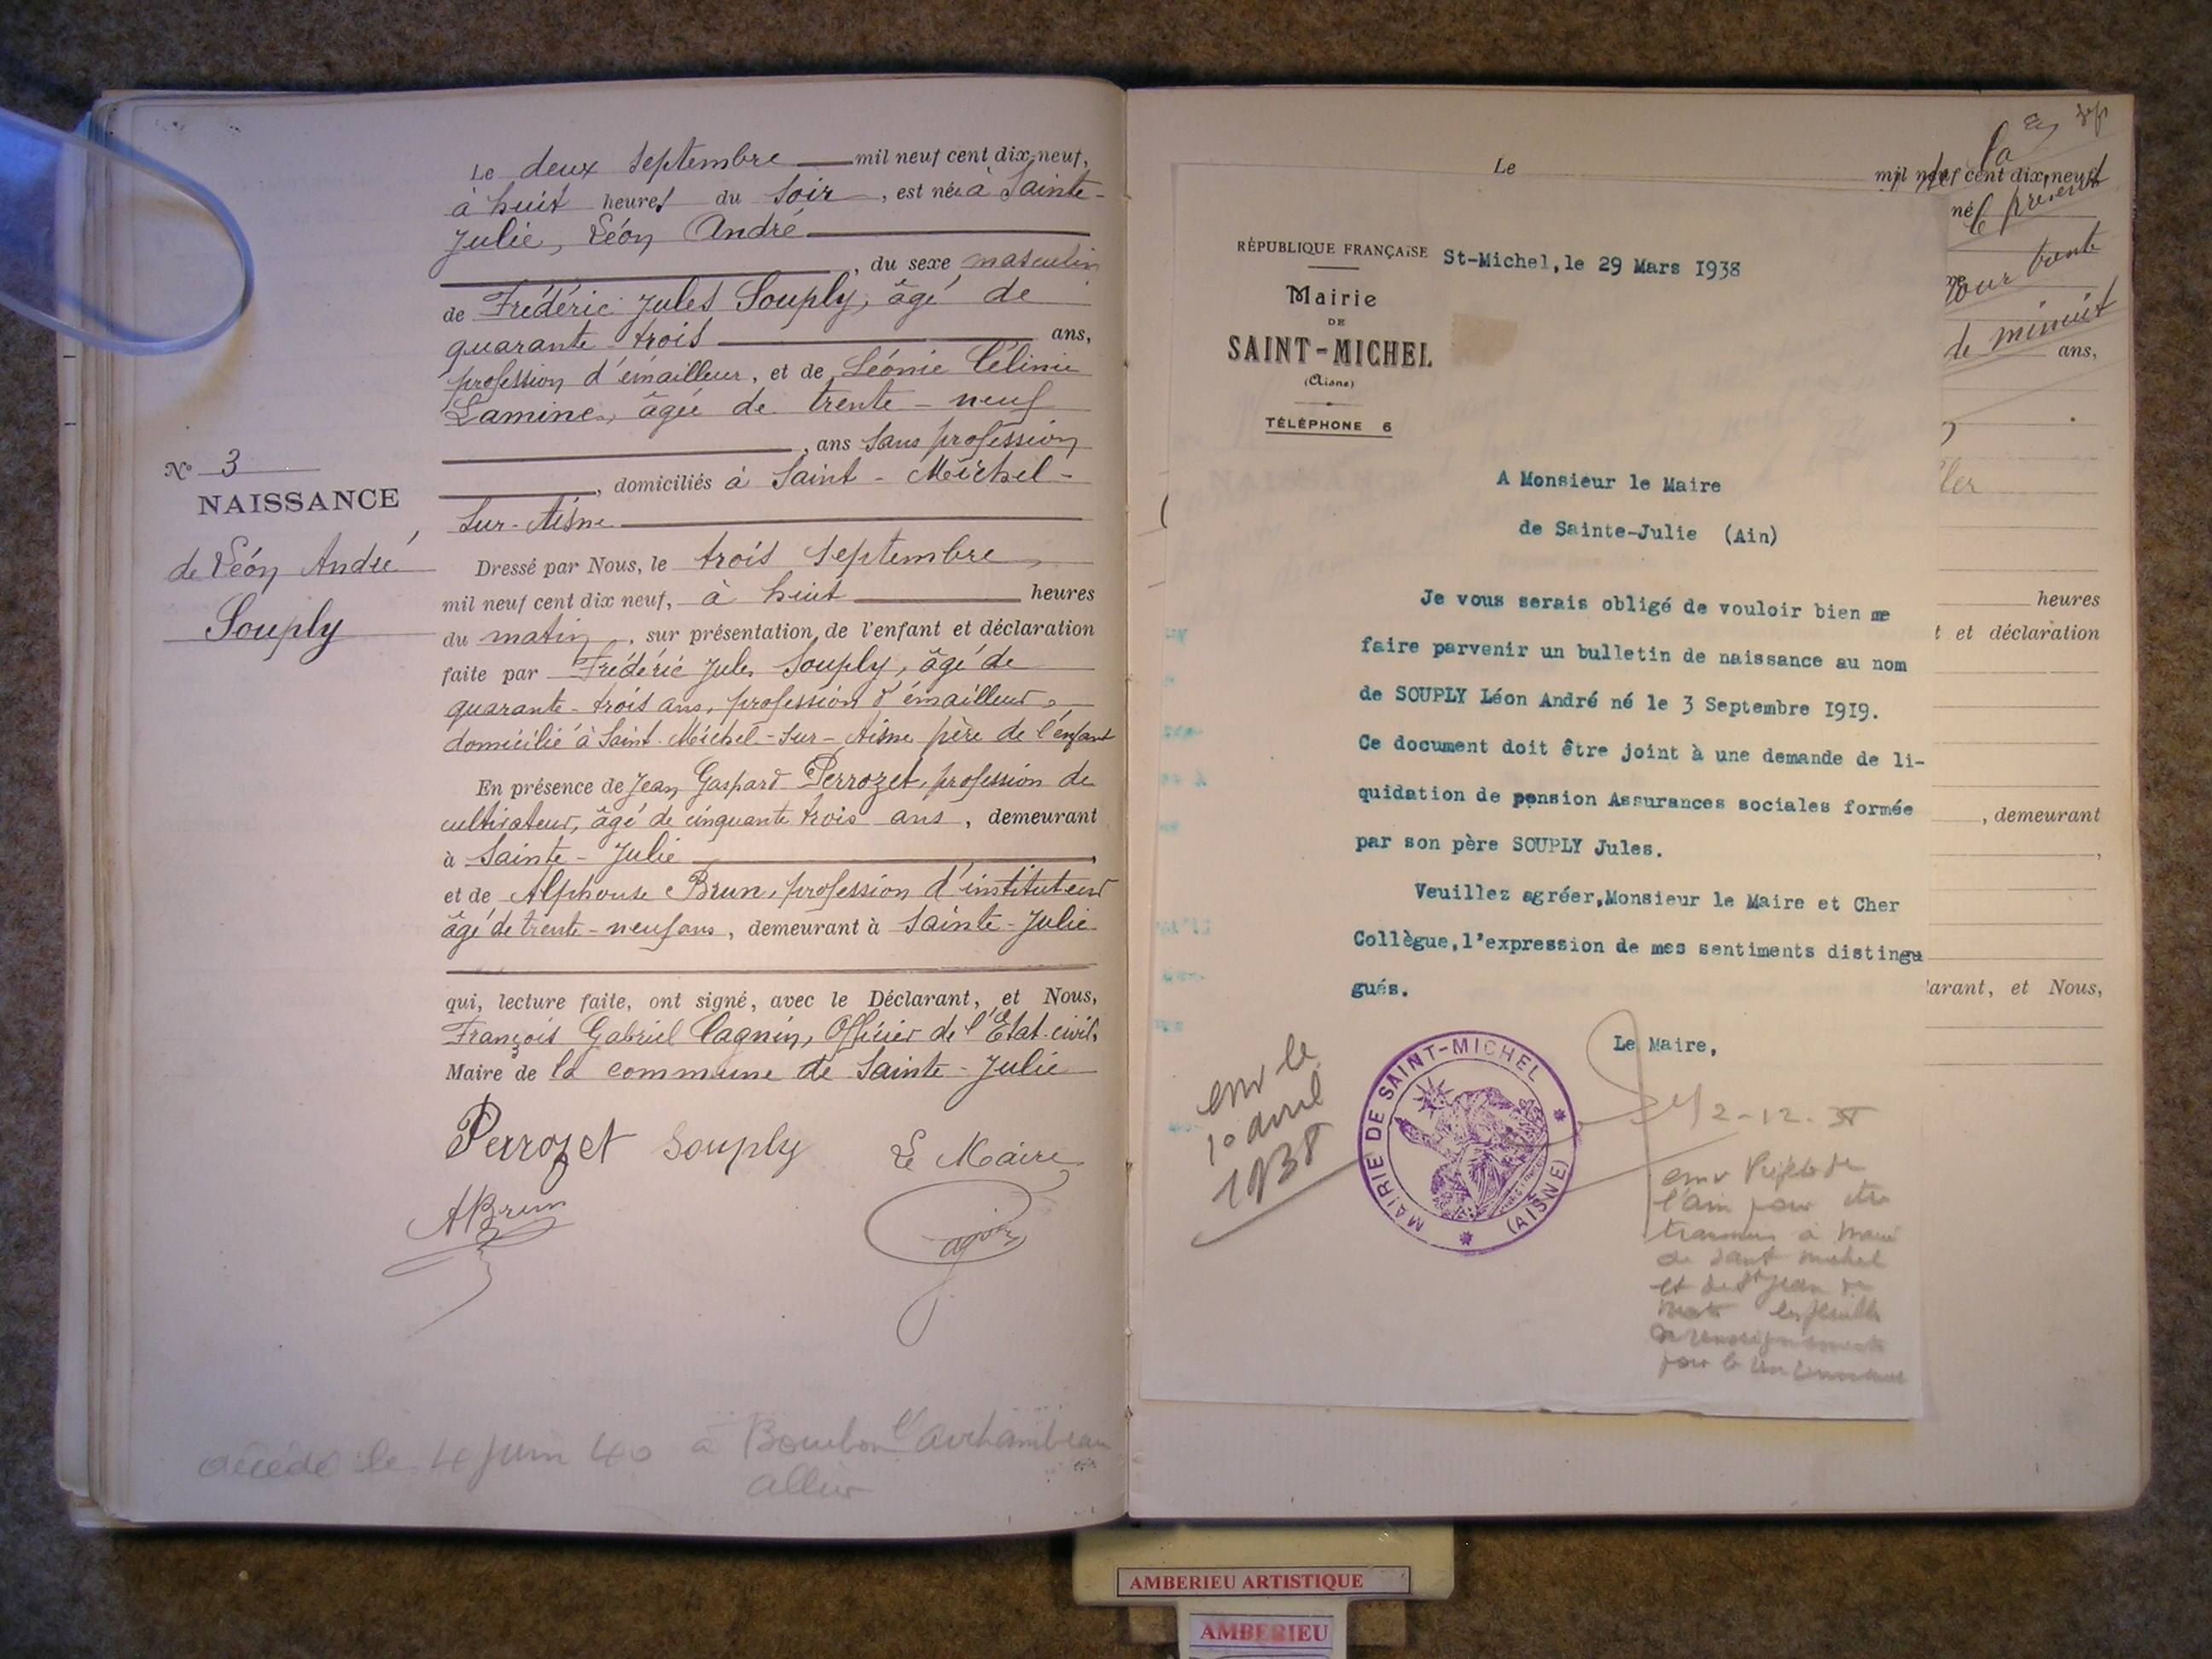 Le deux Septembre mil neuf cent dix-neuf,
à huit heures du Soir, est née à Sainte-
Julie, Léon André
, du sexe masculin
de Frédéric Jules Souply, âgé de
quarante-trois ans,
profession d'émailleur, et de Léonie Céline
Lamine, âgée de trente-neuf
, ans Sans profession
, domiciliés à Saint-Meichel-
Sur-Aisne
N° 3
NAISSANCE
de Léon André
Souply
Dressé par Nous, le trois Septembre
mil neuf cent dix neuf, à huit heures
du matin, sur présentation de l'enfant et déclaration
faite par Frédéric Jules Souply, âgé de
quarante-trois ans, profession d'émailleur,
domicilié à Saint-Meichel-Sur-Aisne père de l'enfant
En présence de Jean Gaspard Perrozet, profession de
cultivateur, âgé de cinquante trois ans, demeurant
à Sainte-Julie
et de Alphonse Brun, profession d'instituteur
âgé de trente-neuf ans, demeurant à Sainte-Julie
qui, lecture faite, ont signé, avec le Déclarant, et Nous,
François Gabriel Cagnin, Officier de l'Etat-civil,
Maire de la commune de Sainte-Julie
Perrozet Souply Le Maire
ABrun Cagnin
décédé le 4 juin 40 à Bourbon l'Archambeau
allier
Le mil neuf cent dix-neuf
la
né le présent
pour trente
de minuit
ans,
RÉPUBLIQUE FRANÇAISE
St-Michel, le 29 Mars 1938
Mairie
DE
SAINT-MICHEL
(Aisne)
TÉLÉPHONE 6
A Monsieur le Maire
de Sainte-Julie (Ain)
Je vous serais obligé de vouloir bien me
faire parvenir un bulletin de naissance au nom
de SOUPLY Léon André né le 3 Septembre 1919.
Ce document doit être joint à une demande de li-
quidation de pension Assurances sociales formée
par son père SOUPLY Jules.
Veuillez agréer,Monsieur le Maire et Cher
Collègue,l'expression de mes sentiments distingu
gués.
Le Maire,
MAIRIE DE SAINT-MICHEL
(AISNE)
env le
10 avril
1938
2-12-38
l'Ain pour être
transmis à
de saint michel
et de St Jean de
heures
t et déclaration
, demeurant
,
larant, et Nous,
AMBERIEU ARTISTIQUE
AMBERIEU